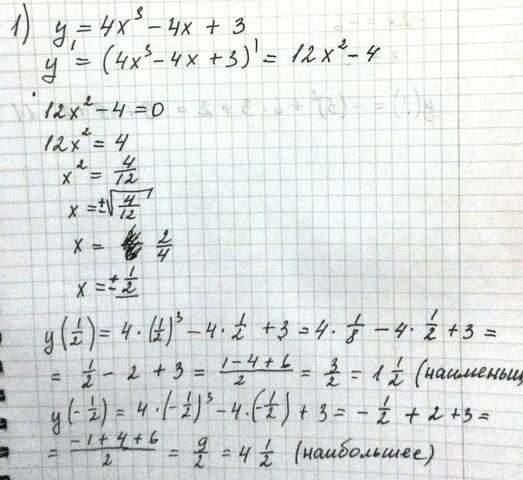 1) y = 4x³ − 4x + 3
y' = (4x³ − 4x + 3)' = 12x² − 4
12x² − 4 = 0
12x² = 4
x² = 4/12
x = ±√(4/12)
x = 2/4
x = ± 1/2
y(1/2) = 4 · (1/2)³ − 4 · 1/2 + 3 = 4 · 1/8 − 4 · 1/2 + 3 =
= 1/2 − 2 + 3 = (1 − 4 + 6)/2 = 3/2 = 1 1/2 (наименьш
y(−1/2) = 4 · (−1/2)³ − 4 · (−1/2) + 3 = −1/2 + 2 + 3 =
= (−1 + 4 + 6)/2 = 9/2 = 4 1/2 (наибольшее)